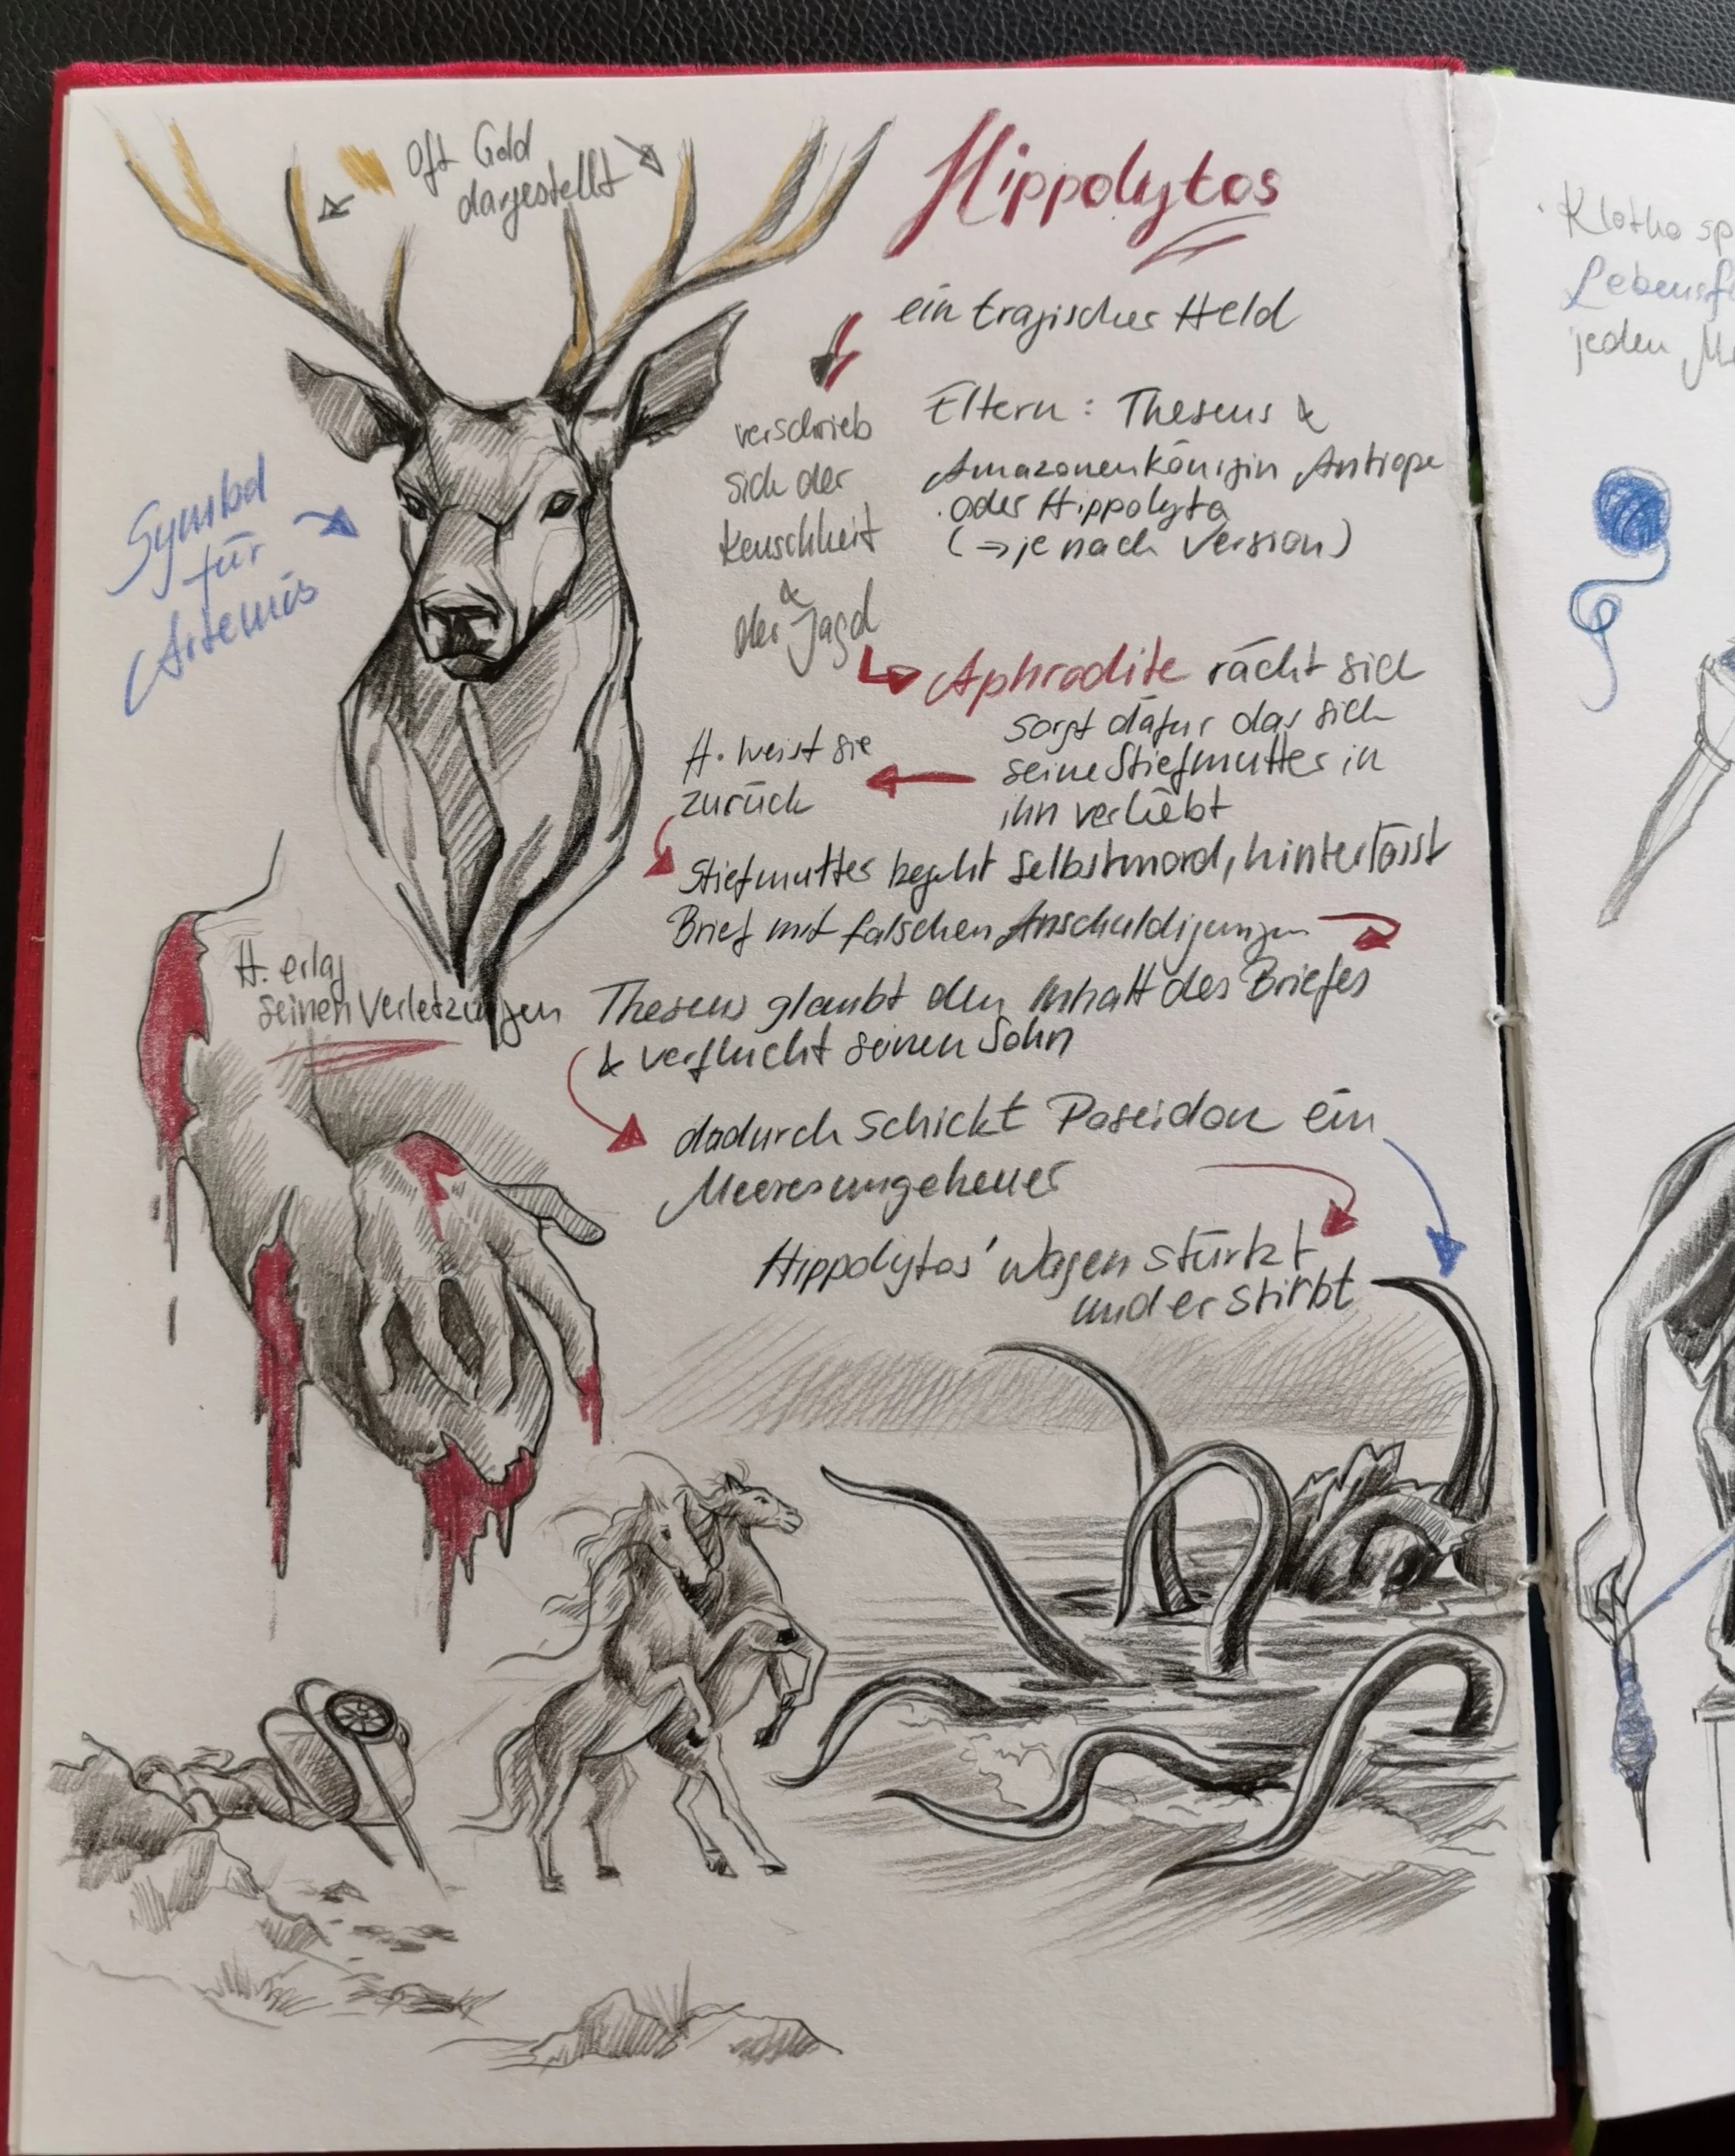 Oft Gold
dargestellt
Hippolytos
ein tragischer Held
verschrieb
sich der
Keuschheit
&
der Jagd
Eltern: Theseus &
Amazonenkönigin Antiope
oder Hippolyta
(→ je nach Version)
Symbol
für
Artemis
Aphrodite rächt sich
sorgt dafür das sich
seine Stiefmutter in
ihn verliebt
H. weist sie
zurück
Stiefmutter begeht Selbstmord, hinterlässt
Brief mit falschen Anschuldigungen
H. erlag
seinen Verletzungen
Theseus glaubt den Inhalt des Briefes
& verflucht seinen Sohn
dadurch schickt Poseidon ein
Meeresungeheuer
Hippolytos' Wagen stürtzt
und er stirbt
Klotho sp
Lebensf
jeden M